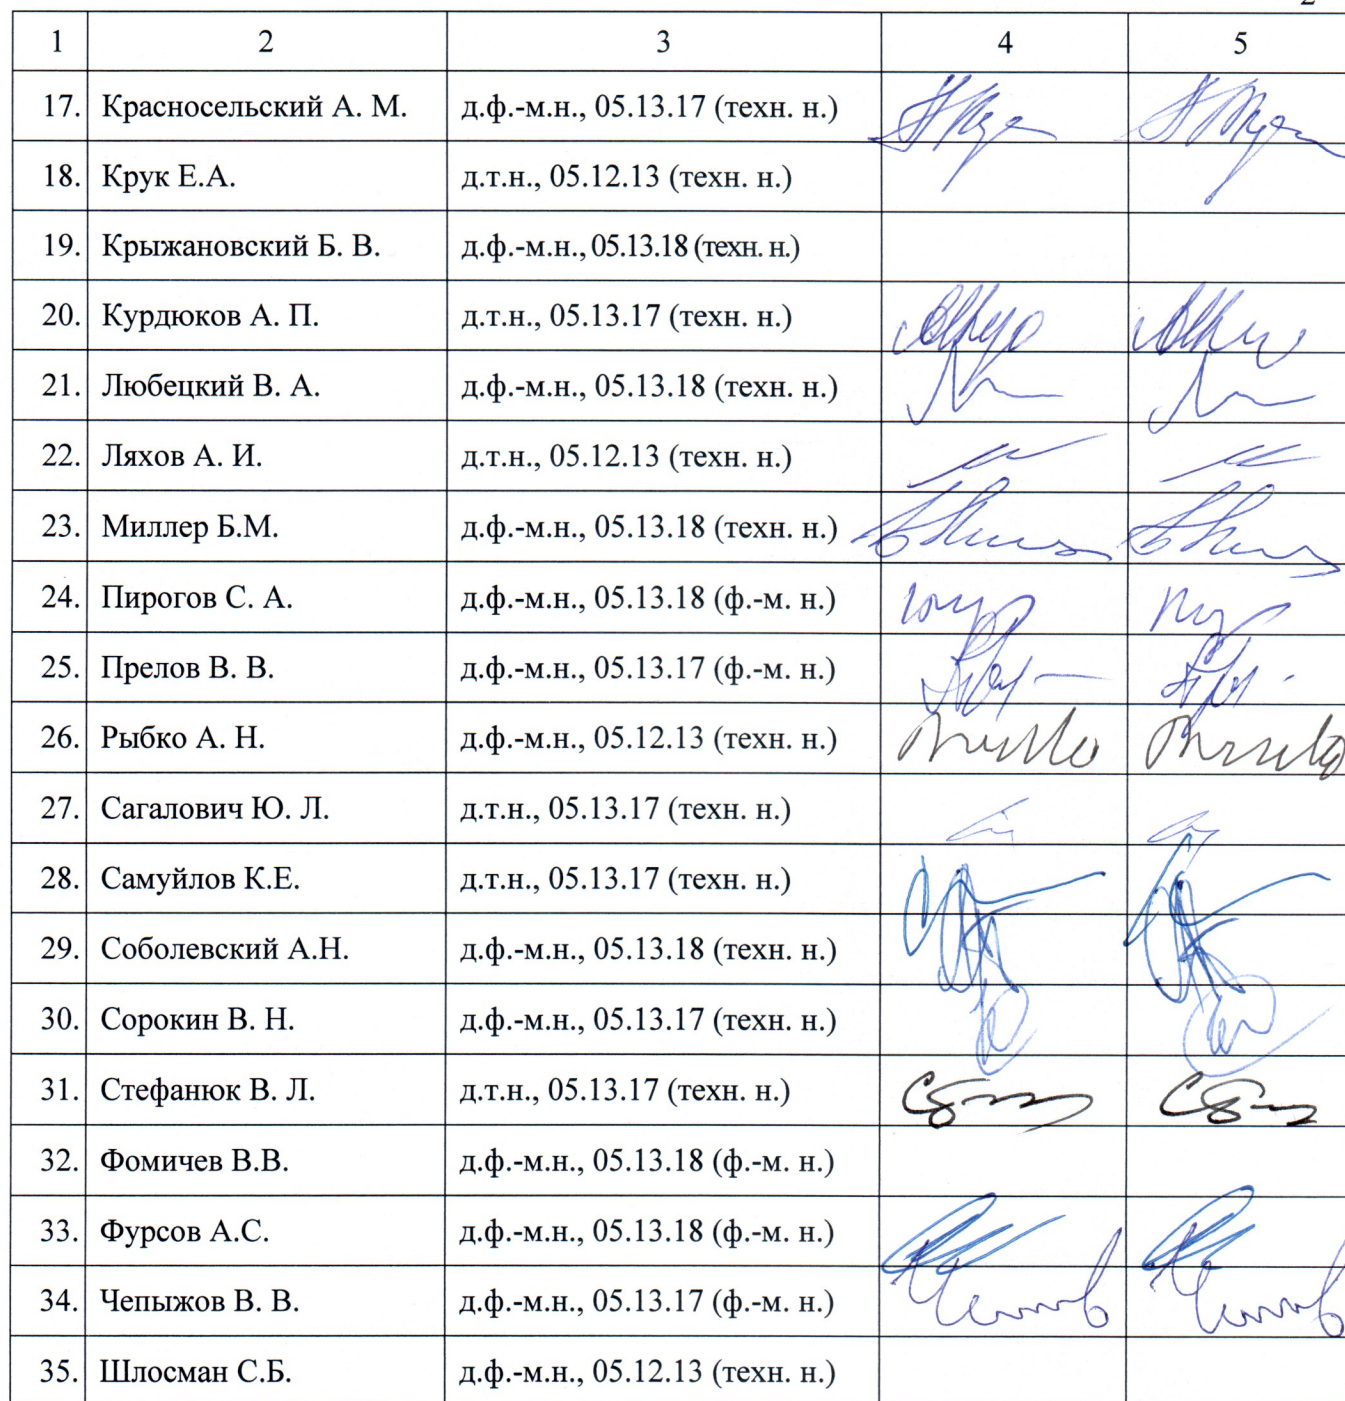 2
1 2 3 4 5
17. Красносельский А. М. д.ф.-м.н., 05.13.17 (техн. н.)
18. Крук Е.А. д.т.н., 05.12.13 (техн. н.)
19. Крыжановский Б. В. д.ф.-м.н., 05.13.18 (техн. н.)
20. Курдюков А. П. д.т.н., 05.13.17 (техн. н.)
21. Любецкий В. А. д.ф.-м.н., 05.13.18 (техн. н.)
22. Ляхов А. И. д.т.н., 05.12.13 (техн. н.)
23. Миллер Б.М. д.ф.-м.н., 05.13.18 (техн. н.)
24. Пирогов С. А. д.ф.-м.н., 05.13.18 (ф.-м. н.)
25. Прелов В. В. д.ф.-м.н., 05.13.17 (ф.-м. н.)
26. Рыбко А. Н. д.ф.-м.н., 05.12.13 (техн. н.)
27. Сагалович Ю. Л. д.т.н., 05.13.17 (техн. н.)
28. Самуйлов К.Е. д.т.н., 05.13.17 (техн. н.)
29. Соболевский А.Н. д.ф.-м.н., 05.13.18 (техн. н.)
30. Сорокин В. Н. д.ф.-м.н., 05.13.17 (техн. н.)
31. Стефанюк В. Л. д.т.н., 05.13.17 (техн. н.)
32. Фомичев В.В. д.ф.-м.н., 05.13.18 (ф.-м. н.)
33. Фурсов А.С. д.ф.-м.н., 05.13.18 (ф.-м. н.)
34. Чепыжов В. В. д.ф.-м.н., 05.13.17 (ф.-м. н.)
35. Шлосман С.Б. д.ф.-м.н., 05.12.13 (техн. н.)